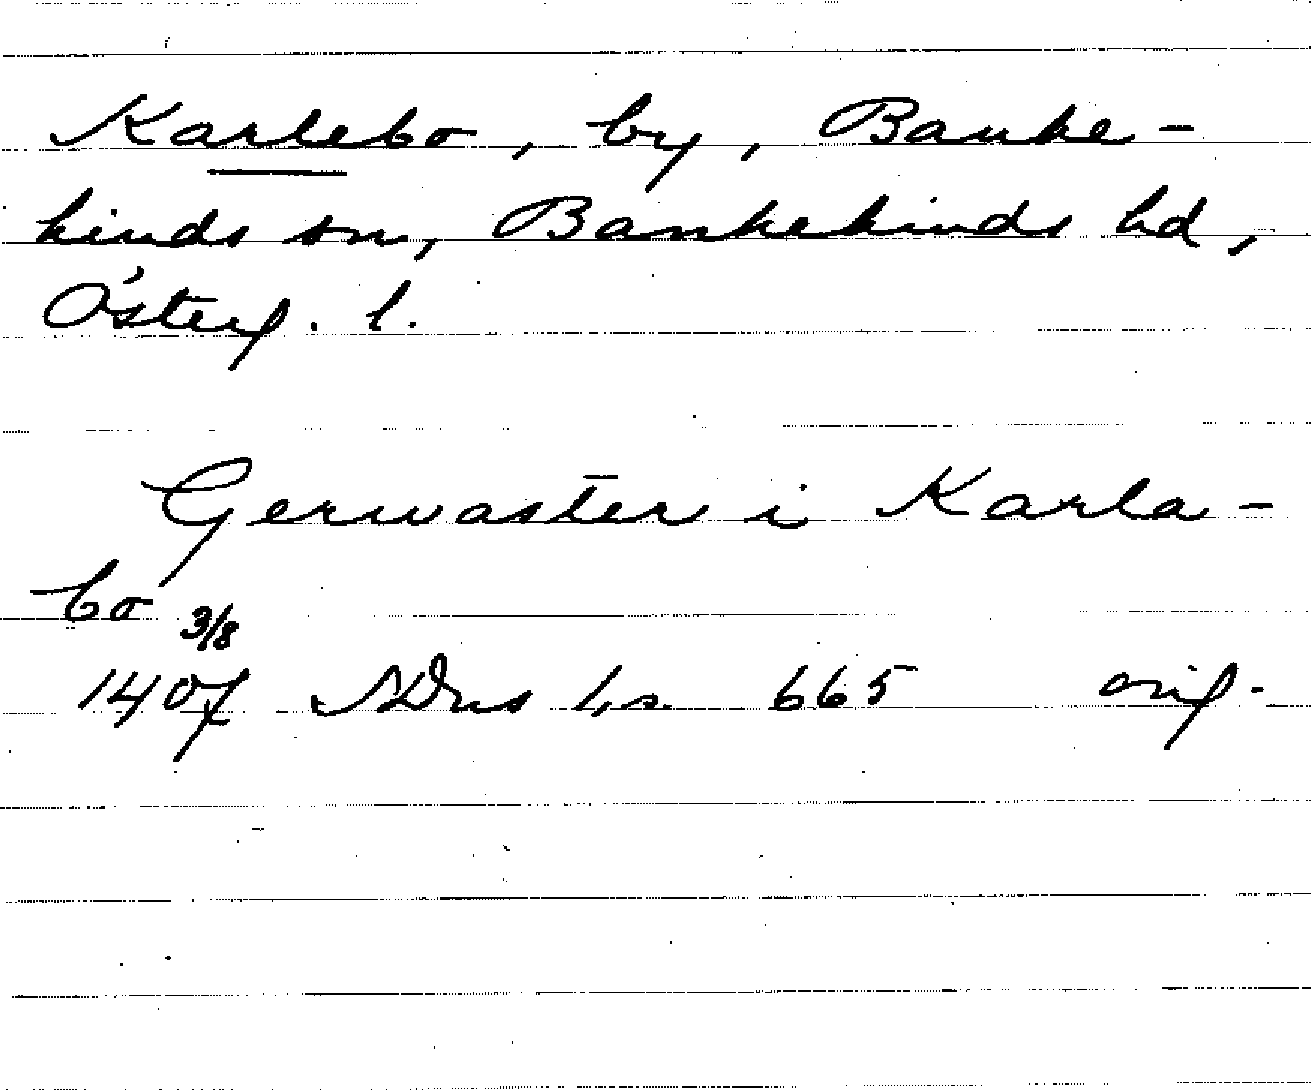 Karlebo, by, Banke-
kinds sn, Bankekinds hd,
Österg. l.
Gerwastēr i Karla-
bo 3/8
1407 SDns 1, s. 665 orig.